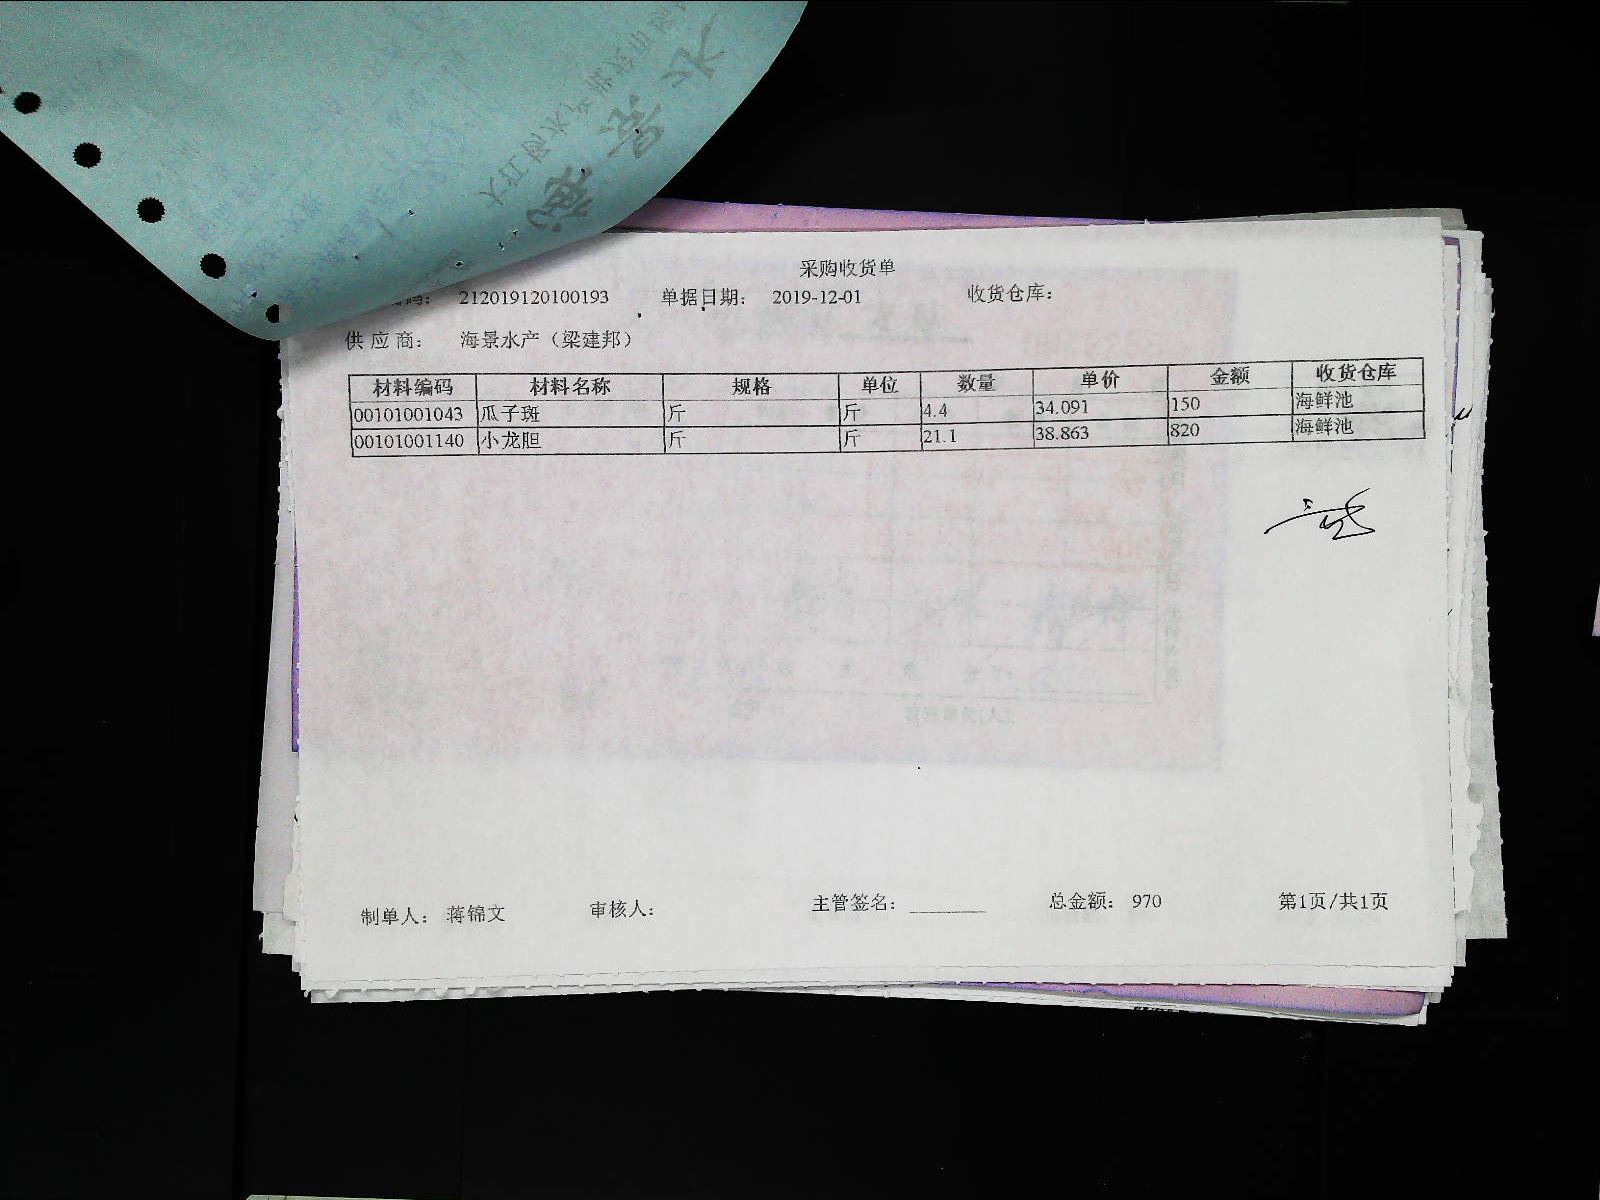 采购收货单
码： 212019120100193 单据日期： 2019-12-01 收货仓库：
供应商： 海景水产（梁建邦）
材料编码 材料名称 规格 单位 数量 单价 金额 收货仓库
00101001043 瓜子斑 斤 斤 4.4 34.091 150 海鲜池
00101001140 小龙胆 斤 斤 21.1 38.863 820 海鲜池
制单人： 蒋锦文 审核人： 主管签名： 总金额： 970 第1页/共1页